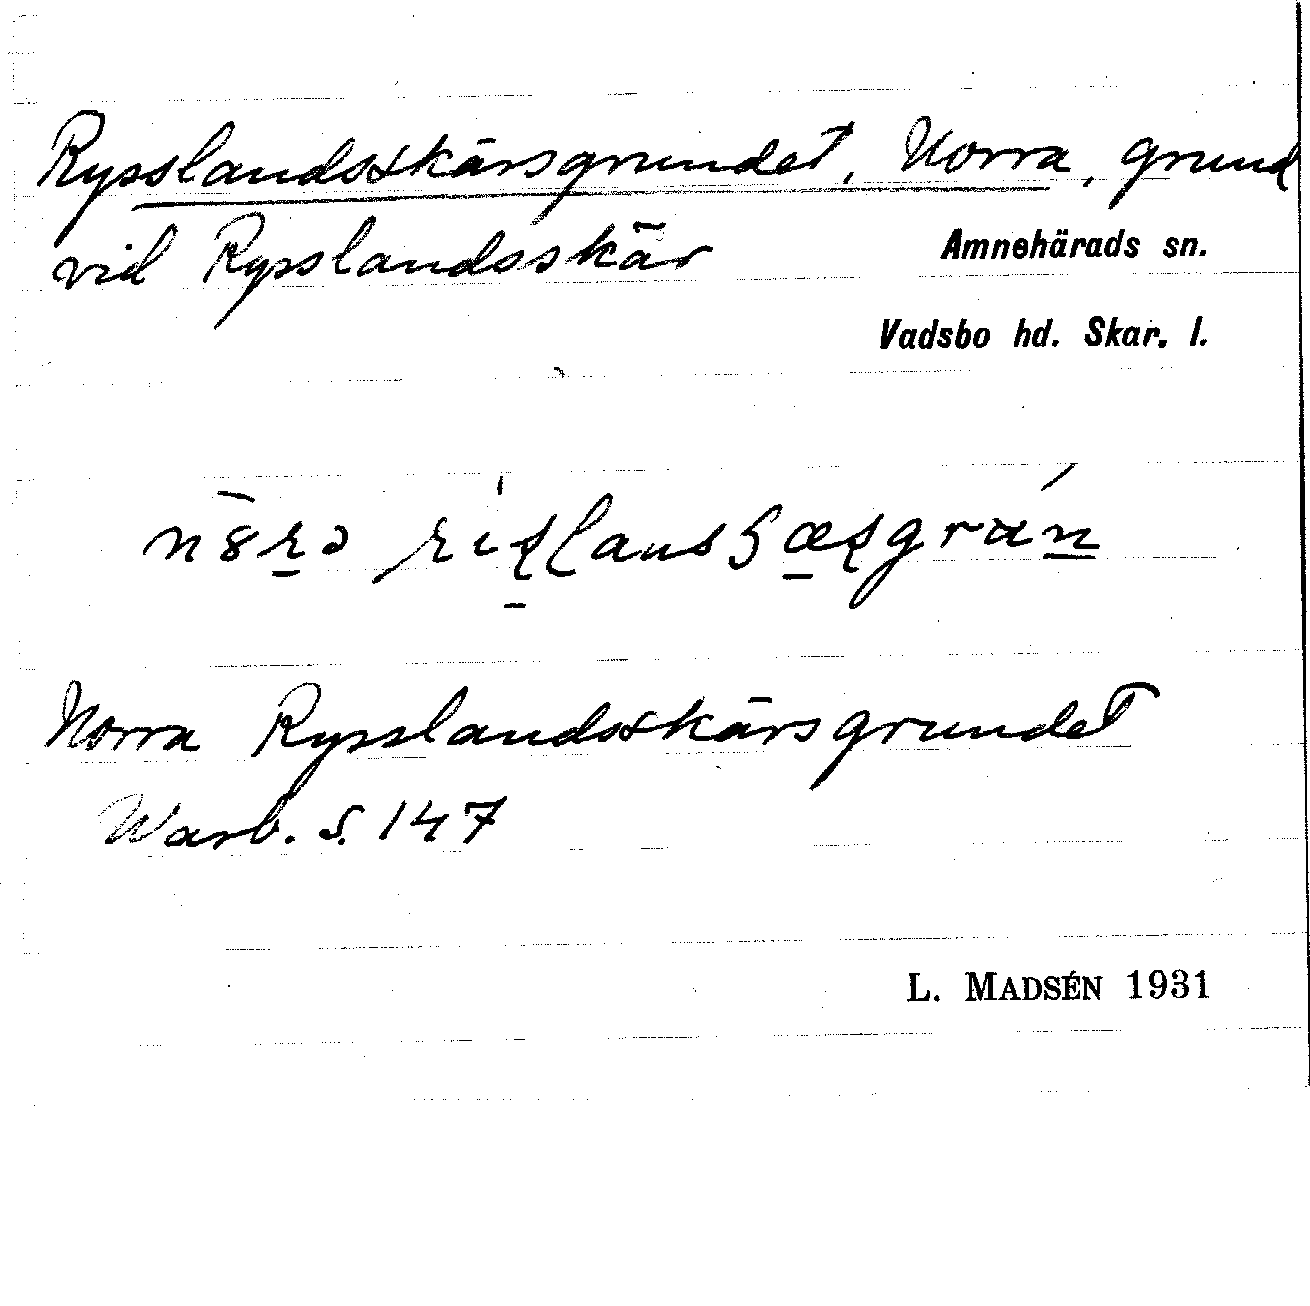 Rysslandsskärsgrundet, Norra, grund
vid Rysslandsskär
Amnehärads sn.
Vadsbo hd. Skar. l.
Norra Rysslandsskärsgrundet
Warb. S. 147
L. MADSÉN 1931